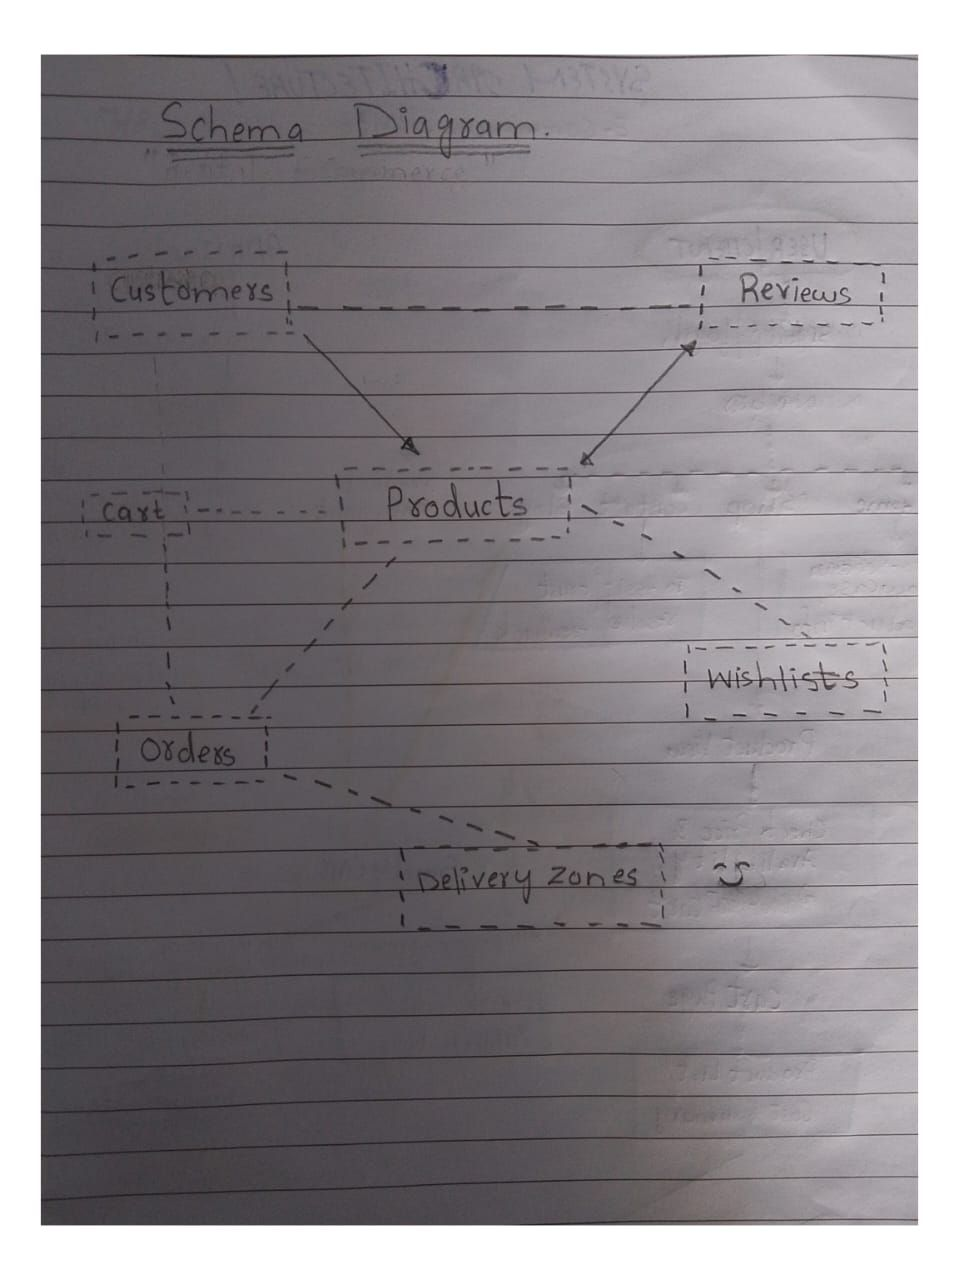 Schema Diagram.
Customers
Reviews
Cart
Products
Wishlists
Orders
Delivery Zones